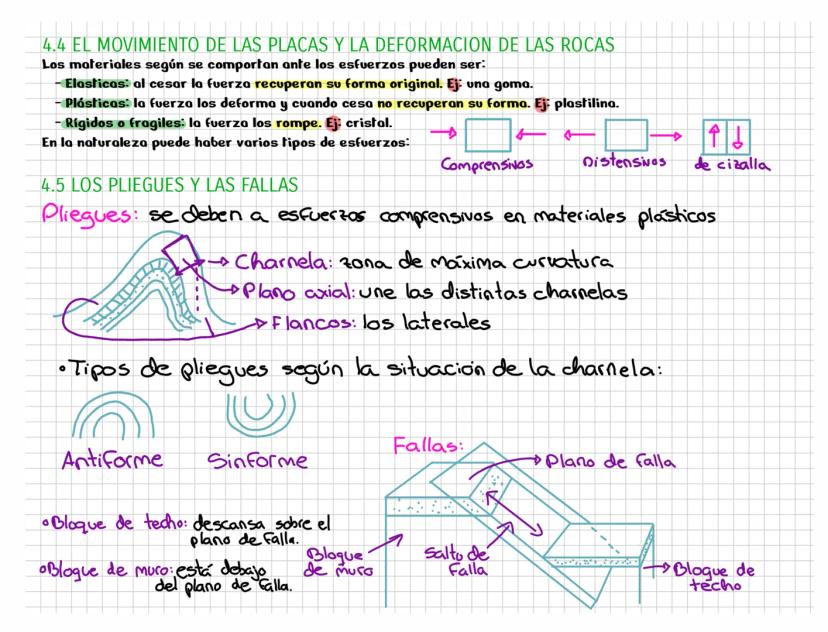 4.4 EL MOVIMIENTO DE LAS PLACAS Y LA DEFORMACION DE LAS ROCAS
Los materiales según se comportan ante los esfuerzos pueden ser:
- Elasticas: al cesar la fuerza recuperan su forma original. Ej: una goma.
- Plásticas: la fuerza los deforma y cuando cesa no recuperan su forma. Ej: plastilina.
- Rígidos o fragiles: la fuerza los rompe. Ej: cristal.
En la naturaleza puede haber varios tipos de esfuerzos:
Comprensivos
Distensivos
de cizalla
4.5 LOS PLIEGUES Y LAS FALLAS
Pliegues: se deben a esfuerzos comprensivos en materiales plásticos
Charnela: zona de máxima curvatura
Plano axial: une las distintas charnelas
Flancos: los laterales
• Tipos de pliegues según la situación de la charnela:
Antiforme
Sinforme
Fallas:
Plano de falla
• Bloque de techo: descansa sobre el
plano de falla.
• Bloque de muro: está debajo
del plano de falla.
Bloque
de muro
Salto de
Falla
Bloque de
techo